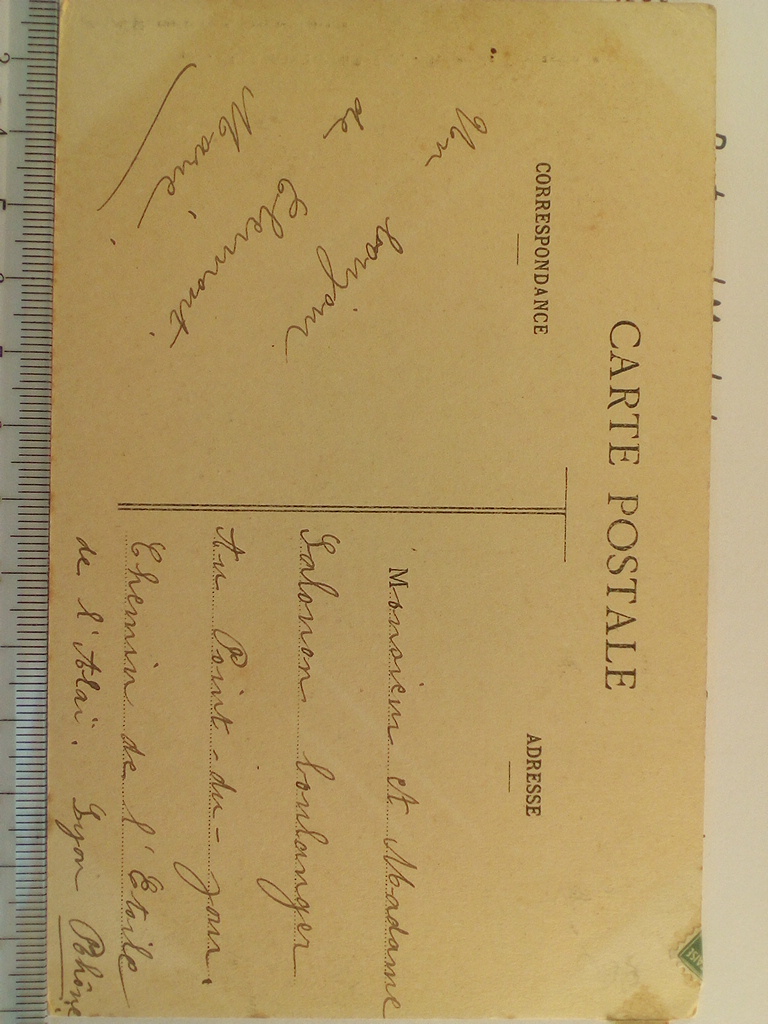 CARTE POSTALE
CORRESPONDANCE
Un
bonjour
de
Clermont
Marie
ADRESSE
Monsieur et Madame
Salomon boulanger
Au Point-du-jour.
Chemin de l'Etoile
de l'Alaï. Lyon Rhône